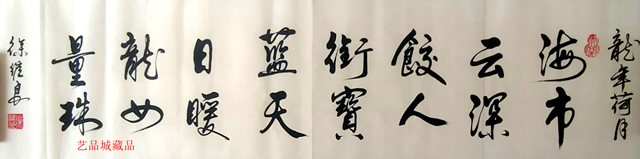 龍年荷月
海市
云深
餃人
銜寶
藍天
日暖
龍女
量珠
徐
艺品城藏品